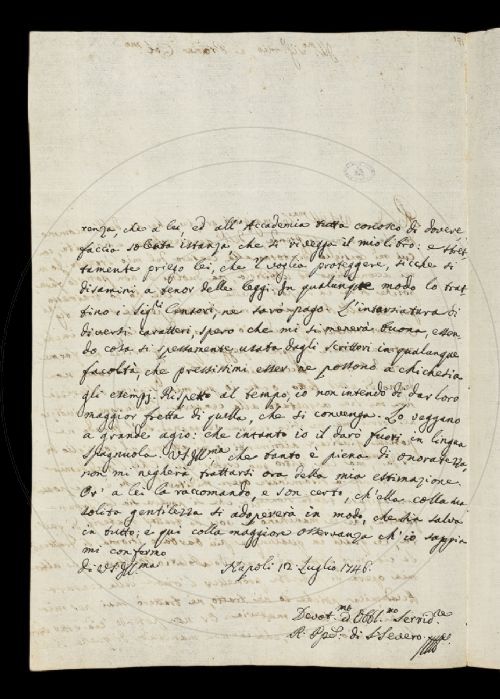 renza, che a lui, ed all' Accademia tutta conosco di dovere
faccio istanza che si rivegga il mio libro: e
tamente priego lei, che 'l voglia proteggere, sicche si
disamini a tenor delle leggi. In qualunque modo lo trat
tino i Sig.ri Censori, ne sarò pago. L'intarsiatura di
diversi caratteri, spero che mi si menerà buona, essen
do cosa si spessamente usata dagli scrittori in qualunque
facoltà, che prestissimi esser ne possono a chichesia
gli esempj. Rispetto al tempo, io non intendo di dar loro
maggior fretta di quella, che si convenga. Lo veggano
a grande agio: che intanto io il darò fuori in lingua
Spagnuola. V.S.Ill.ma che tanto è piena di onoratezza
non mi negherà trattarsi ora della mia estimazione.
Or' a lei la raccomando, e son certo, ch'ella colla sua
solita gentilezza si adopererà in modo, che sia salva
in tutto; e qui colla maggiore osservanza ch'io sappia
mi confermo
di V.S.Ill.ma Napoli 12 Luglio 1746.
Devot.mo ed Obbl.mo Servid.re
Il Ppe. di S. Severo